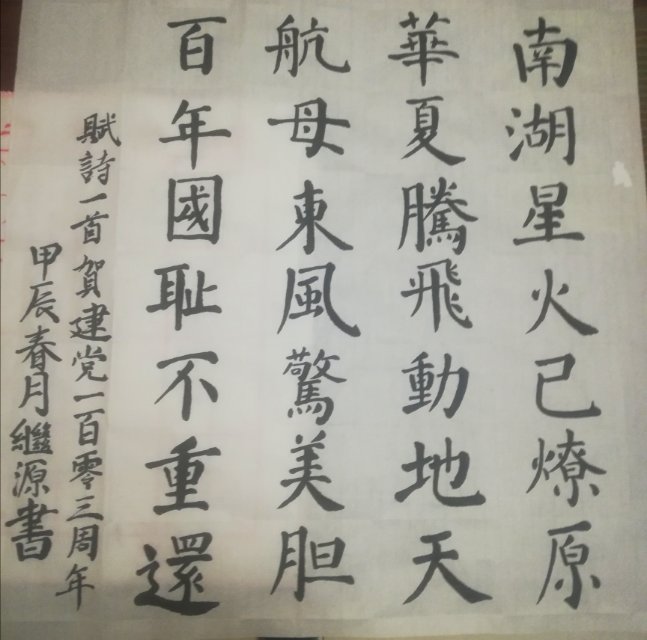 南湖星火已燎原
華夏騰飛動地天
航母東風驚美胆
百年國耻不重還
賦詩一首賀建党一百零三周年
甲辰春月繼源書